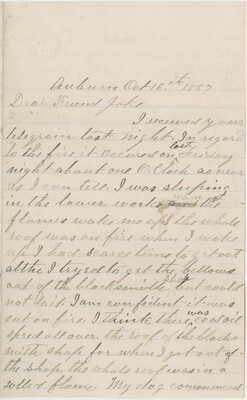 Auburn Oct 16th 1887
Dear Friend Jake
I received your
telegram last night. In regard
to the fire it occured on last Friday
night about one O Clock as near
as I can tell. I was sleeping
in the lower works and the
flames woke me up. the whole
roof was on fire when I woke
up. I had scarce time to get out
all tho I tryed to get the bellows
out of the blacksmith but could
not do it. I am confident it was
set on fire. I think there was coal oil
spred all over the roof of the black
smith shop for when I got out of
the shop the whole roof was in a
solled flame. My dog commenced